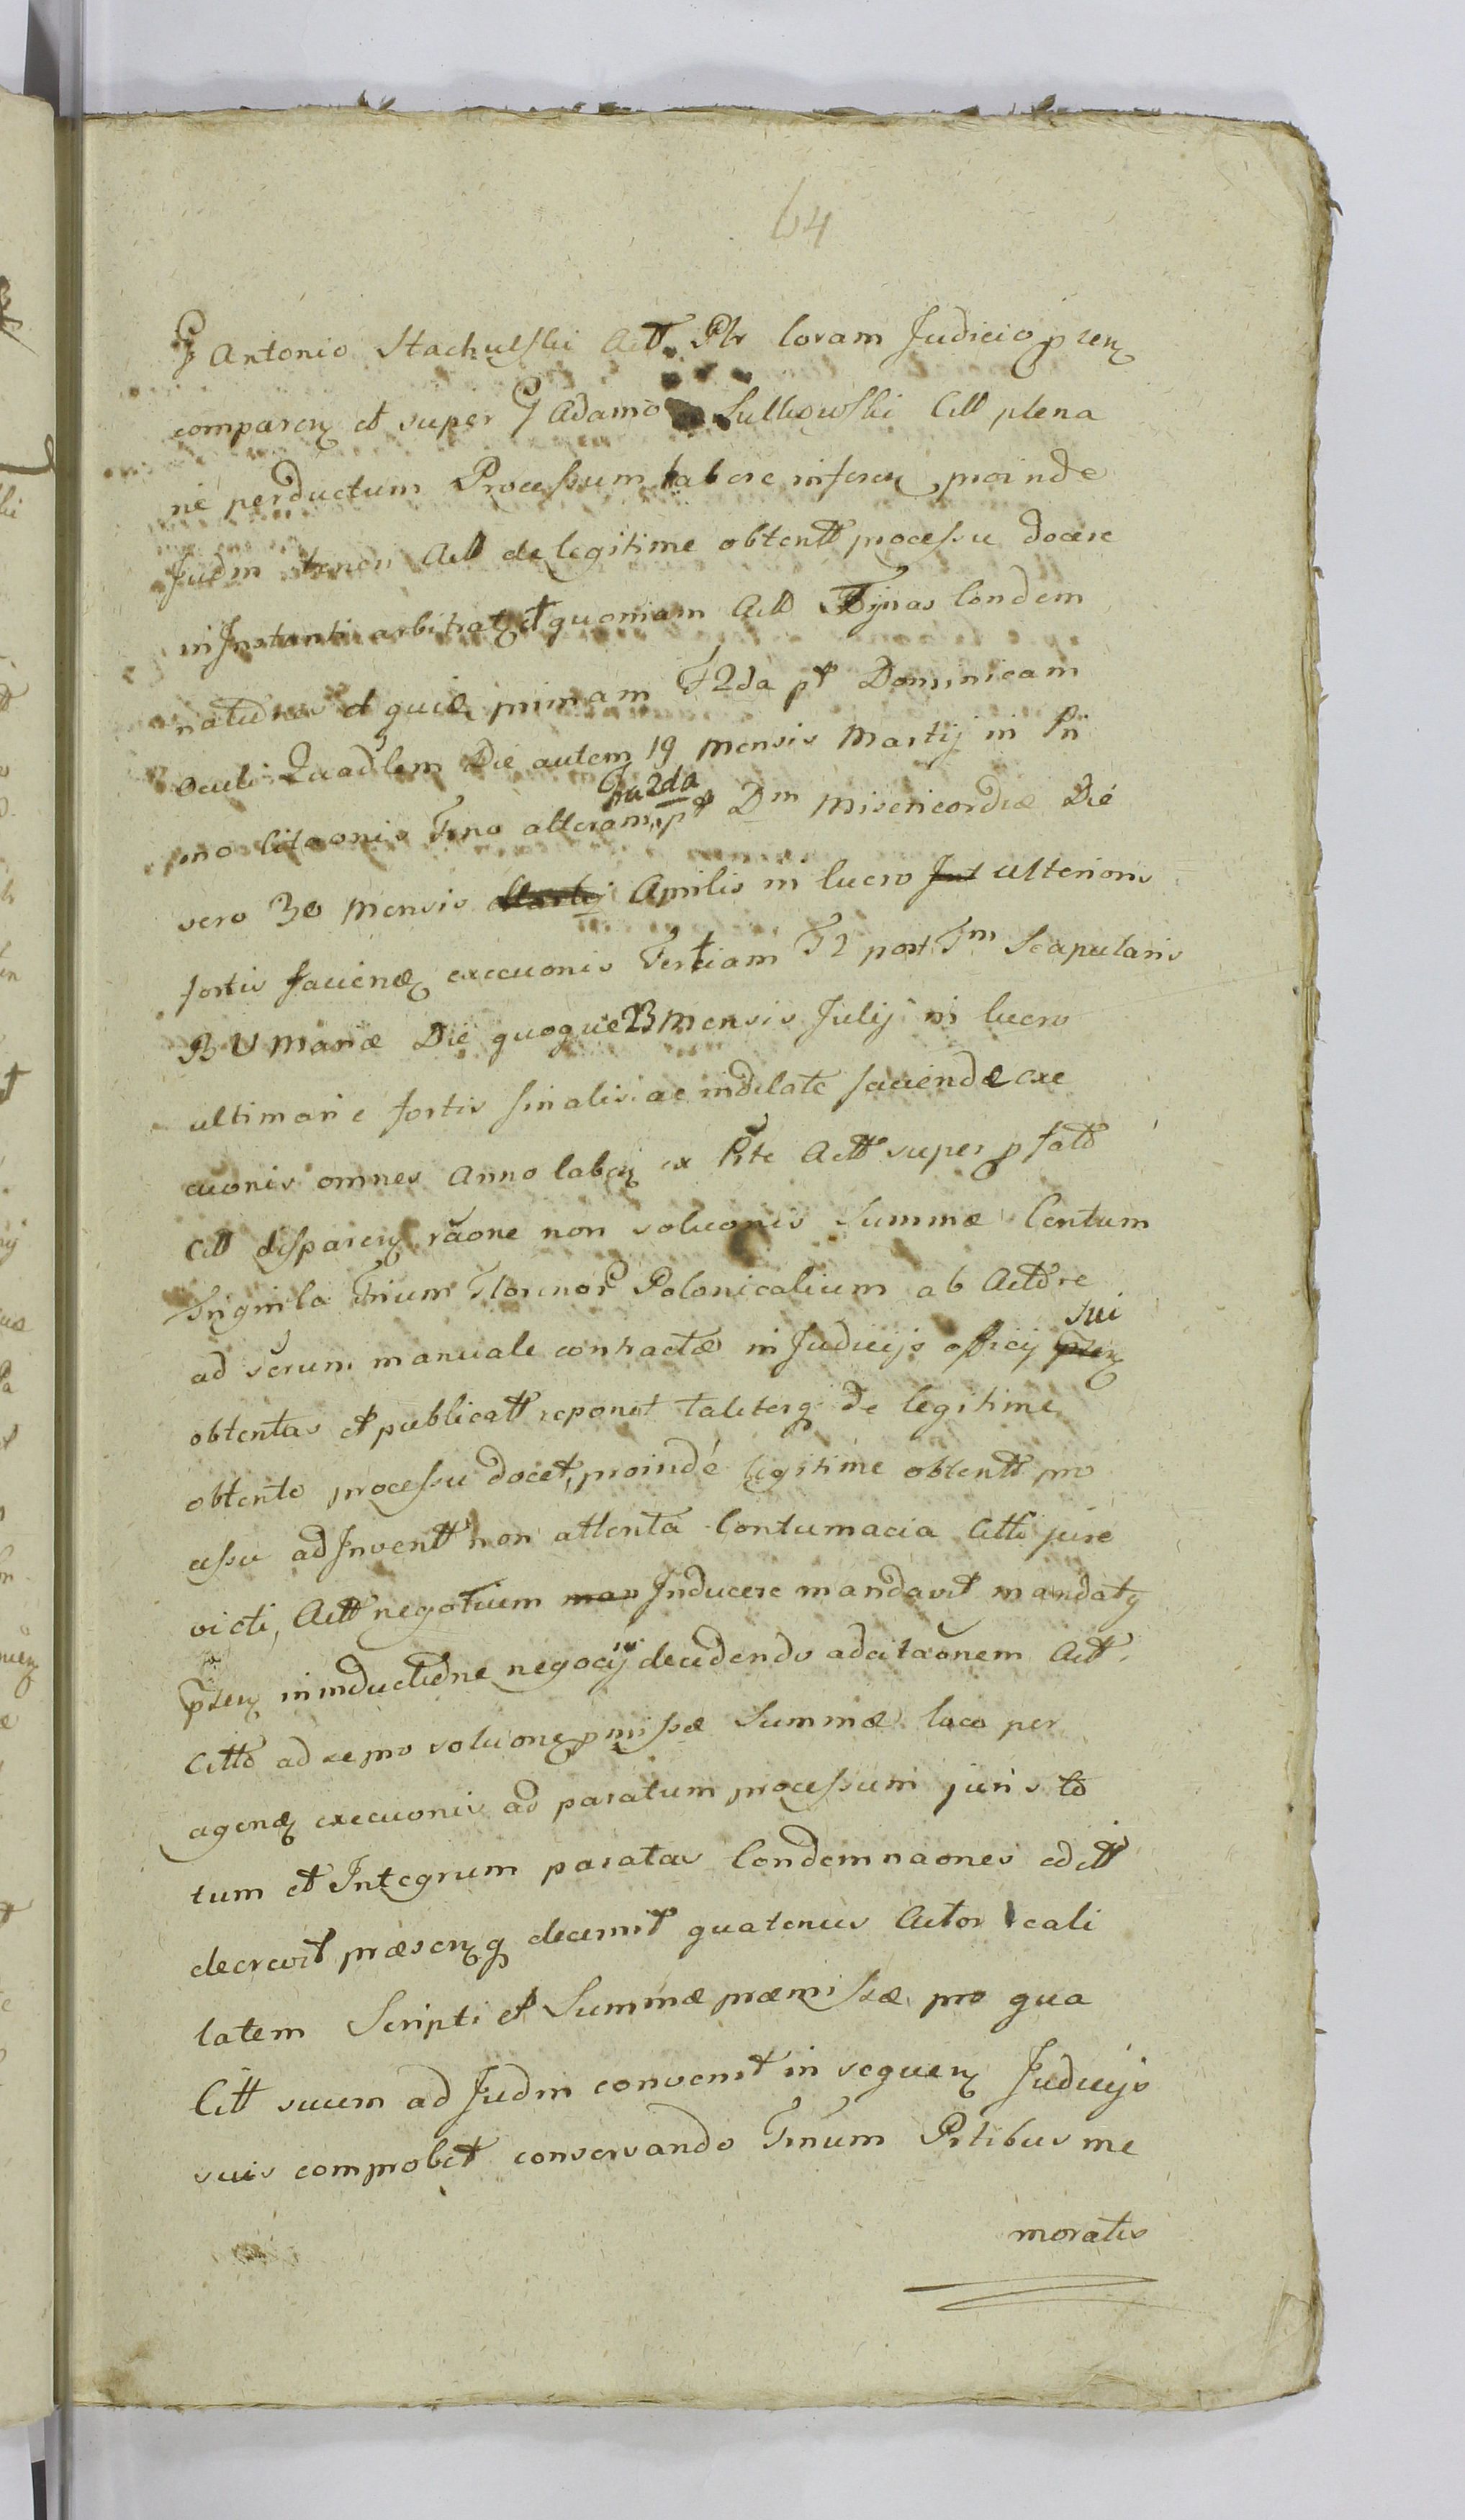 64
G Antonio Stachulski Actt Plr Coram Judicio p rsen
comparen et super G Adamo Sulkowski Citt plena
rie perductum Processum habere inferen proinde
Judm tenori Actt de legitime obtentt processu docere
in Instanti arbitratq et quoniam Actt Trinas Condem
natuones et quide primam F2da pt Dominicam
Oculi Quadlem Die autem 19 Mensis Martij in Pri
mo Citaonis Tmno alteram Fa 2da pt Dm Misericordiæ Die
vero 30 Mensis Martij Aprilis in lucro Jut ulterioris
fortis faciendæ execuonis Tertiam F2 post Fm Scapularis
B V Mariæ Die quoque 23 Mensis Julij in lucro
ultimarie fortis finalis ac indilate faciendæ exe
cuonis omnes Anno laben ex Prte Actt super p fatto
Citt disparen raone non soluonis Summæ Centum
Triginta Trium Florenor Polonicalium ab Actore
ad scrum manuale contractæ in Judicijs officij prsen sui
obtentas et publicatt reponit taliterq de legitime
obtento processu docet, proinde legitime obtentt pro
cessu ad Inventt non attenta Contumacia Citti jure
victi, Actt negotium man Inducere mandavit mandatq
prsen in inductione negocij decidendo ad citaonem Actt
Citto ad se pro soluone pmissæ Summæ loco per
agendæ execuonis ad paratum processum juris to
tum et Integrum paratas Condemnaones editt
decrevit præsenq decernit quatenus Actor reali
tatem Scripti et Summæ præmissæ pro qua
Citt suum ad Judm convenit in sequen Judicijs
suis comprobet conservando Tmnum Prtibus me
moratis